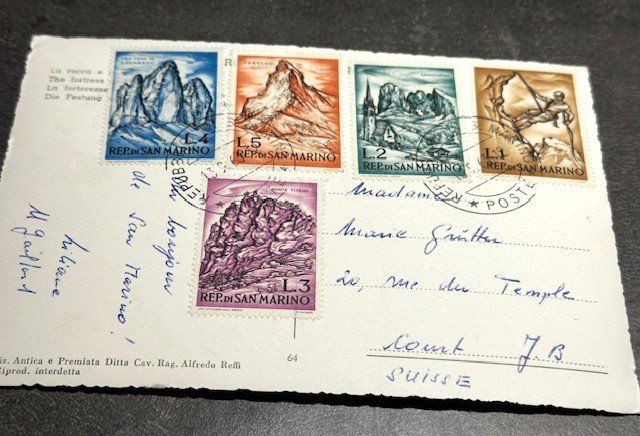 La rocca e
The fortress
La forteresse
Die Festung
R
TRE CIME DI
LAVAREDO
L.4
REP. DI SAN MARINO
CERVINO
L.5
REP. DI SAN MARINO
L.2
REP. DI SAN MARINO
L.1
REP. DI SAN MARINO
MONTE TITANO
L.3
REP. DI SAN MARINO
POSTE
Un bonjour
de San Marino!
Liliane
M Gaillard
Madame
Marie Grütter
20, rue du Temple
Court J.B
SUISSE
iz. Antica e Premiata Ditta Cav. Rag. Alfredo Reffi
Riprod. interdetta
64